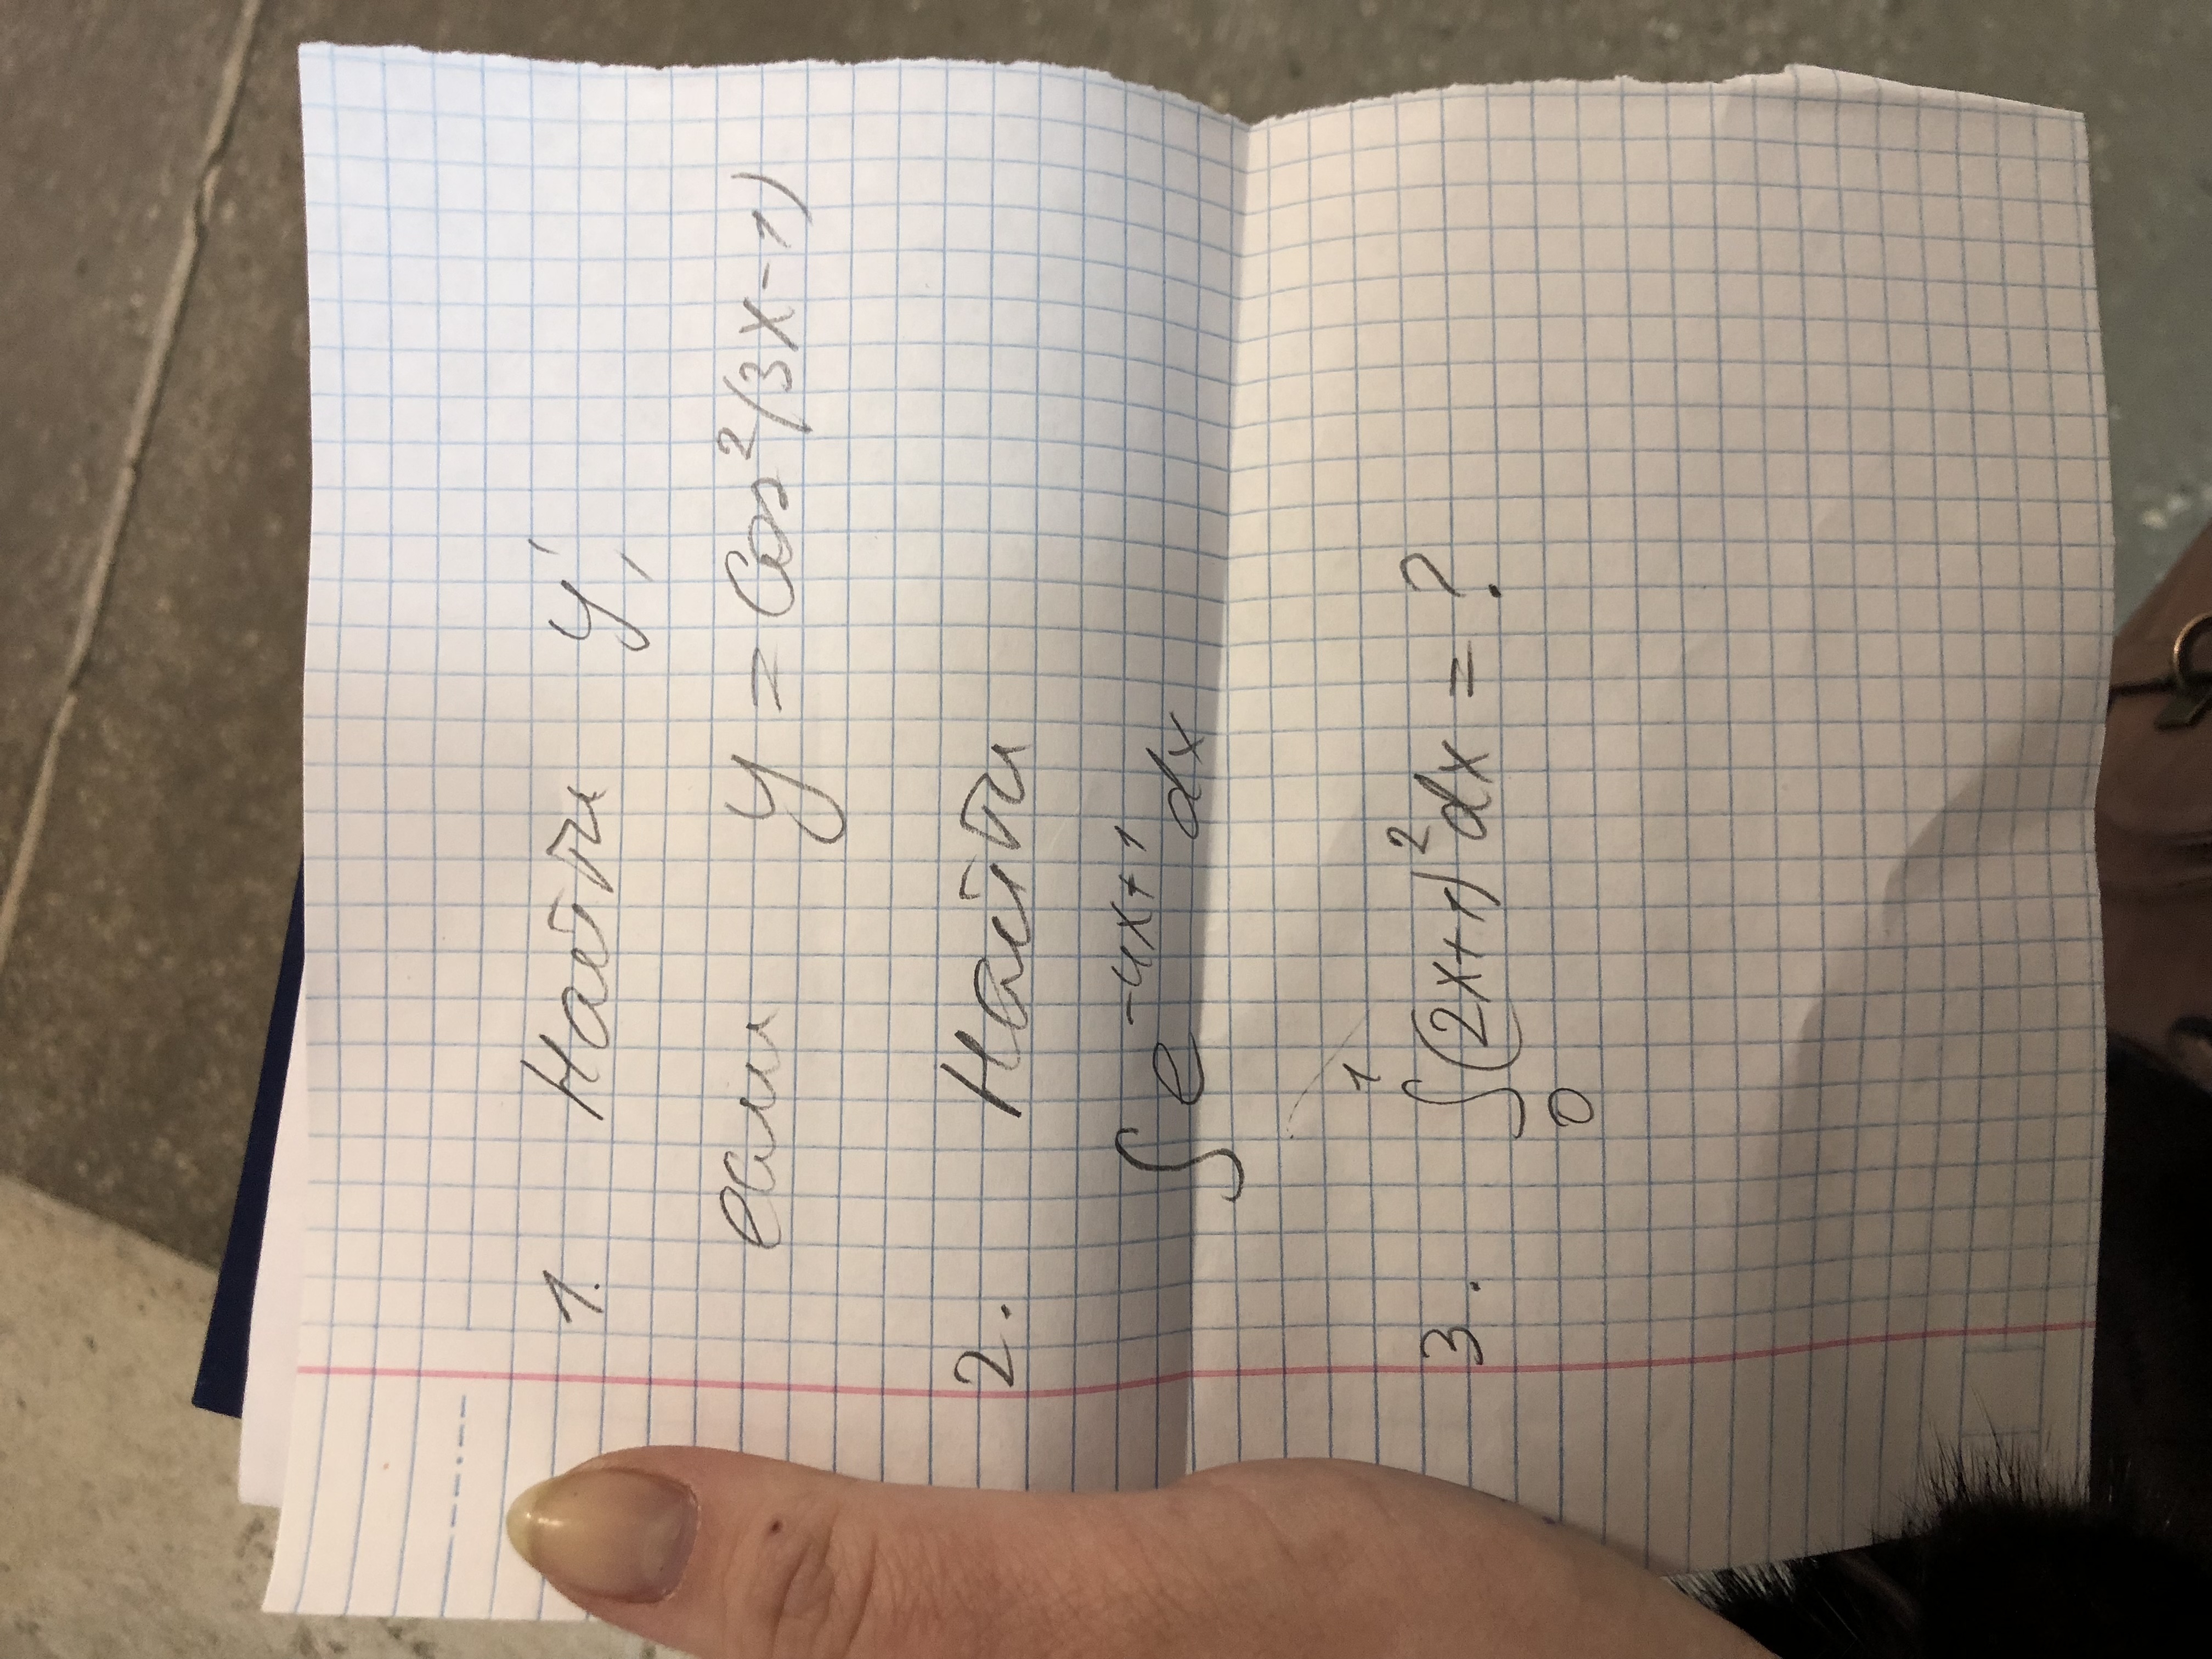 1. Найти y',
если y = Cos²(3x-1)
2. Найти
∫ e^{-4x+1} dx
3. ∫₀¹ (2x+1)² dx = ?